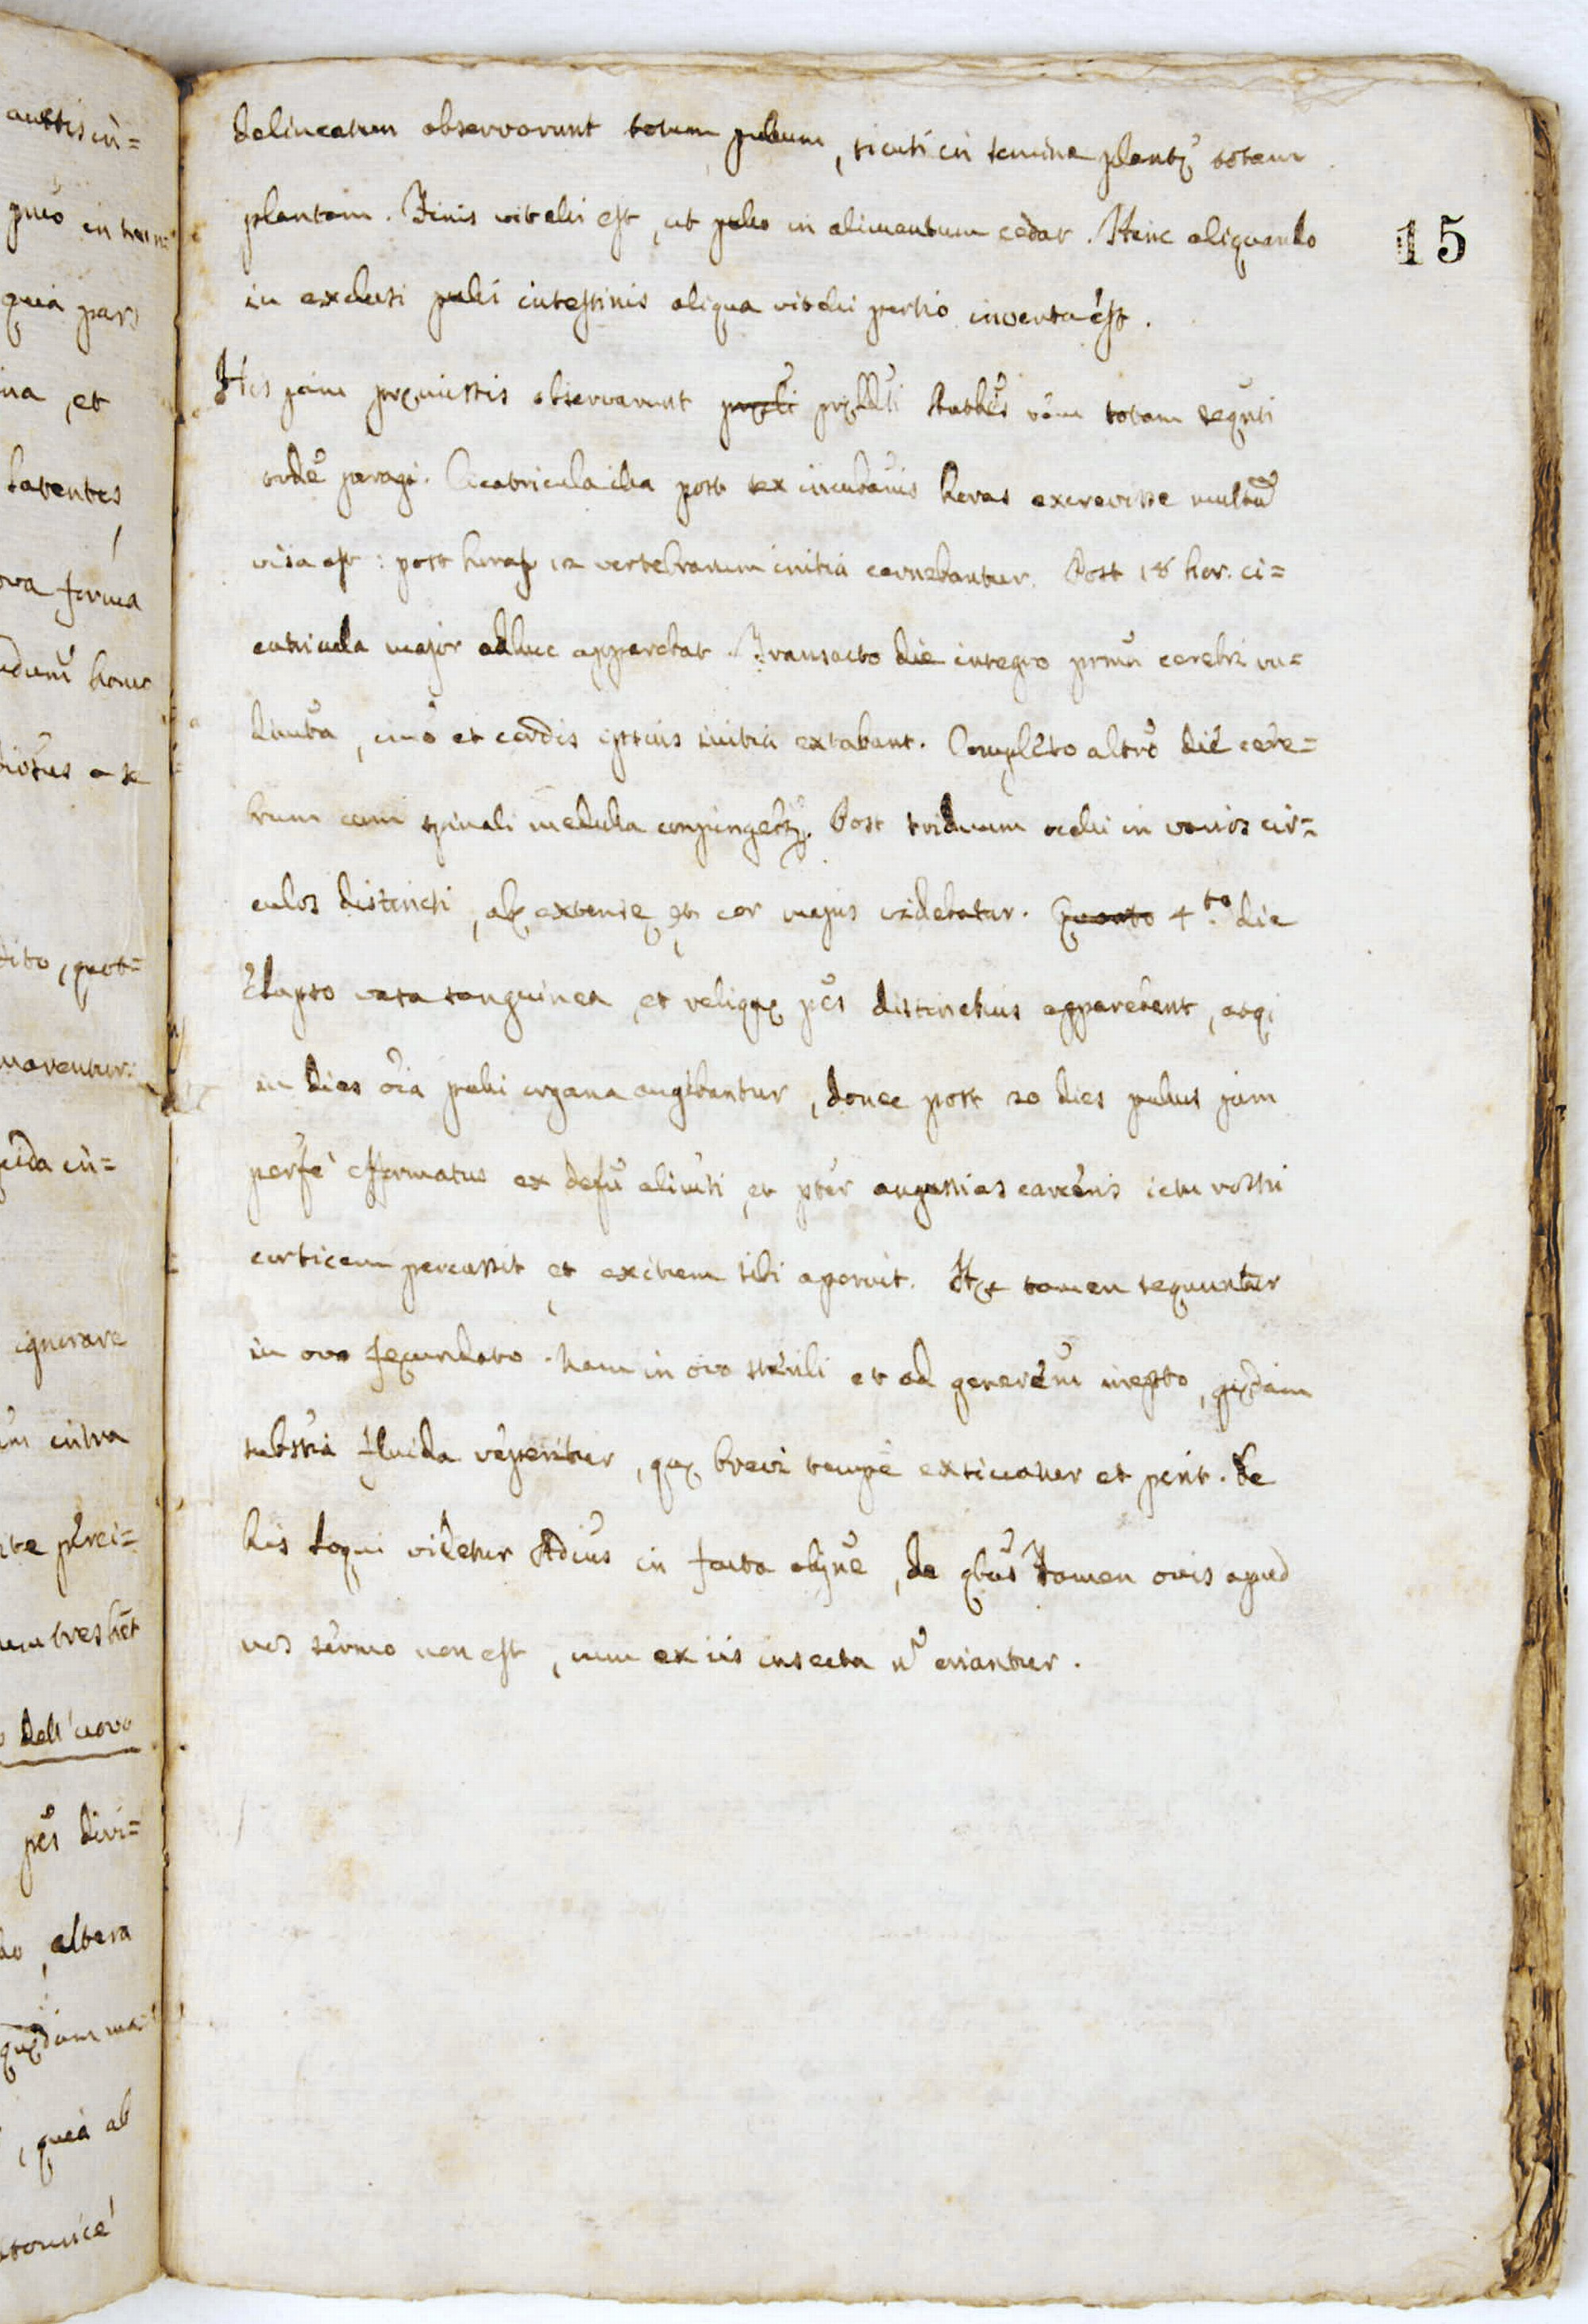 austis in=
puo in hu
quia pars
ina, et
latentes
ova forma
hunc
a se
dito, quot=
moventur.
uida in=
ignorare
intra
dell'uovo
pẽs divi=
altera
quędam ma
, quia ab
delineatum observarunt totum pullum, sicuti in semine plantę totam
plantam. Finis vitelli est, ut pullo in alimentum cedat. Hinc aliquando
15
in exclusi pulli intestinis aliqua vitelli portio inventa est.
His jam pręmissis observarunt pręlłti Authẽs rẽm totam seqũti
ordẽ peragi. Cicatricula illa post sex incubãnis horas excrevisse multũ
visa est: post horas 12 vertebrarum initia cernebantur. Post 18 hor. ci=
catricula major adhuc apparebat. Transacto die integro primũ cerebri ru=
dimẽta, imò et cordis ipsius initia extabant. Completo altrõ die cere=
brum cum spinali medulla conjungebãr. Post triduum oculi in varios cir=
culos distincti, alę extensę, et cor majus videbatur. Quarto 4.to die
elapso vasa sanguinea, et reliquę pẽs distinctius apparebant, atq;
in dies oĩa pulli organa augebantur, donec post 20 dies pullus jam
perfè efformatus ex defũ alimẽti, et ptẽr angustias carcẽris ictu rostri
corticem percussit et exitum sibi aperuit. Hęc tamen sequuntur
in ovo fęcundato. Nam in ovo sterili et ad generãẽm inepto, quędam
substĩa fluida reperitur, quę brevi tempe exsiccatur et perit. De
his loqui videtur Adĩus in facta objnẽ, de qbũs tamen ovis apud
nos sermo non est, cum ex iis insecta nõ oriantur.